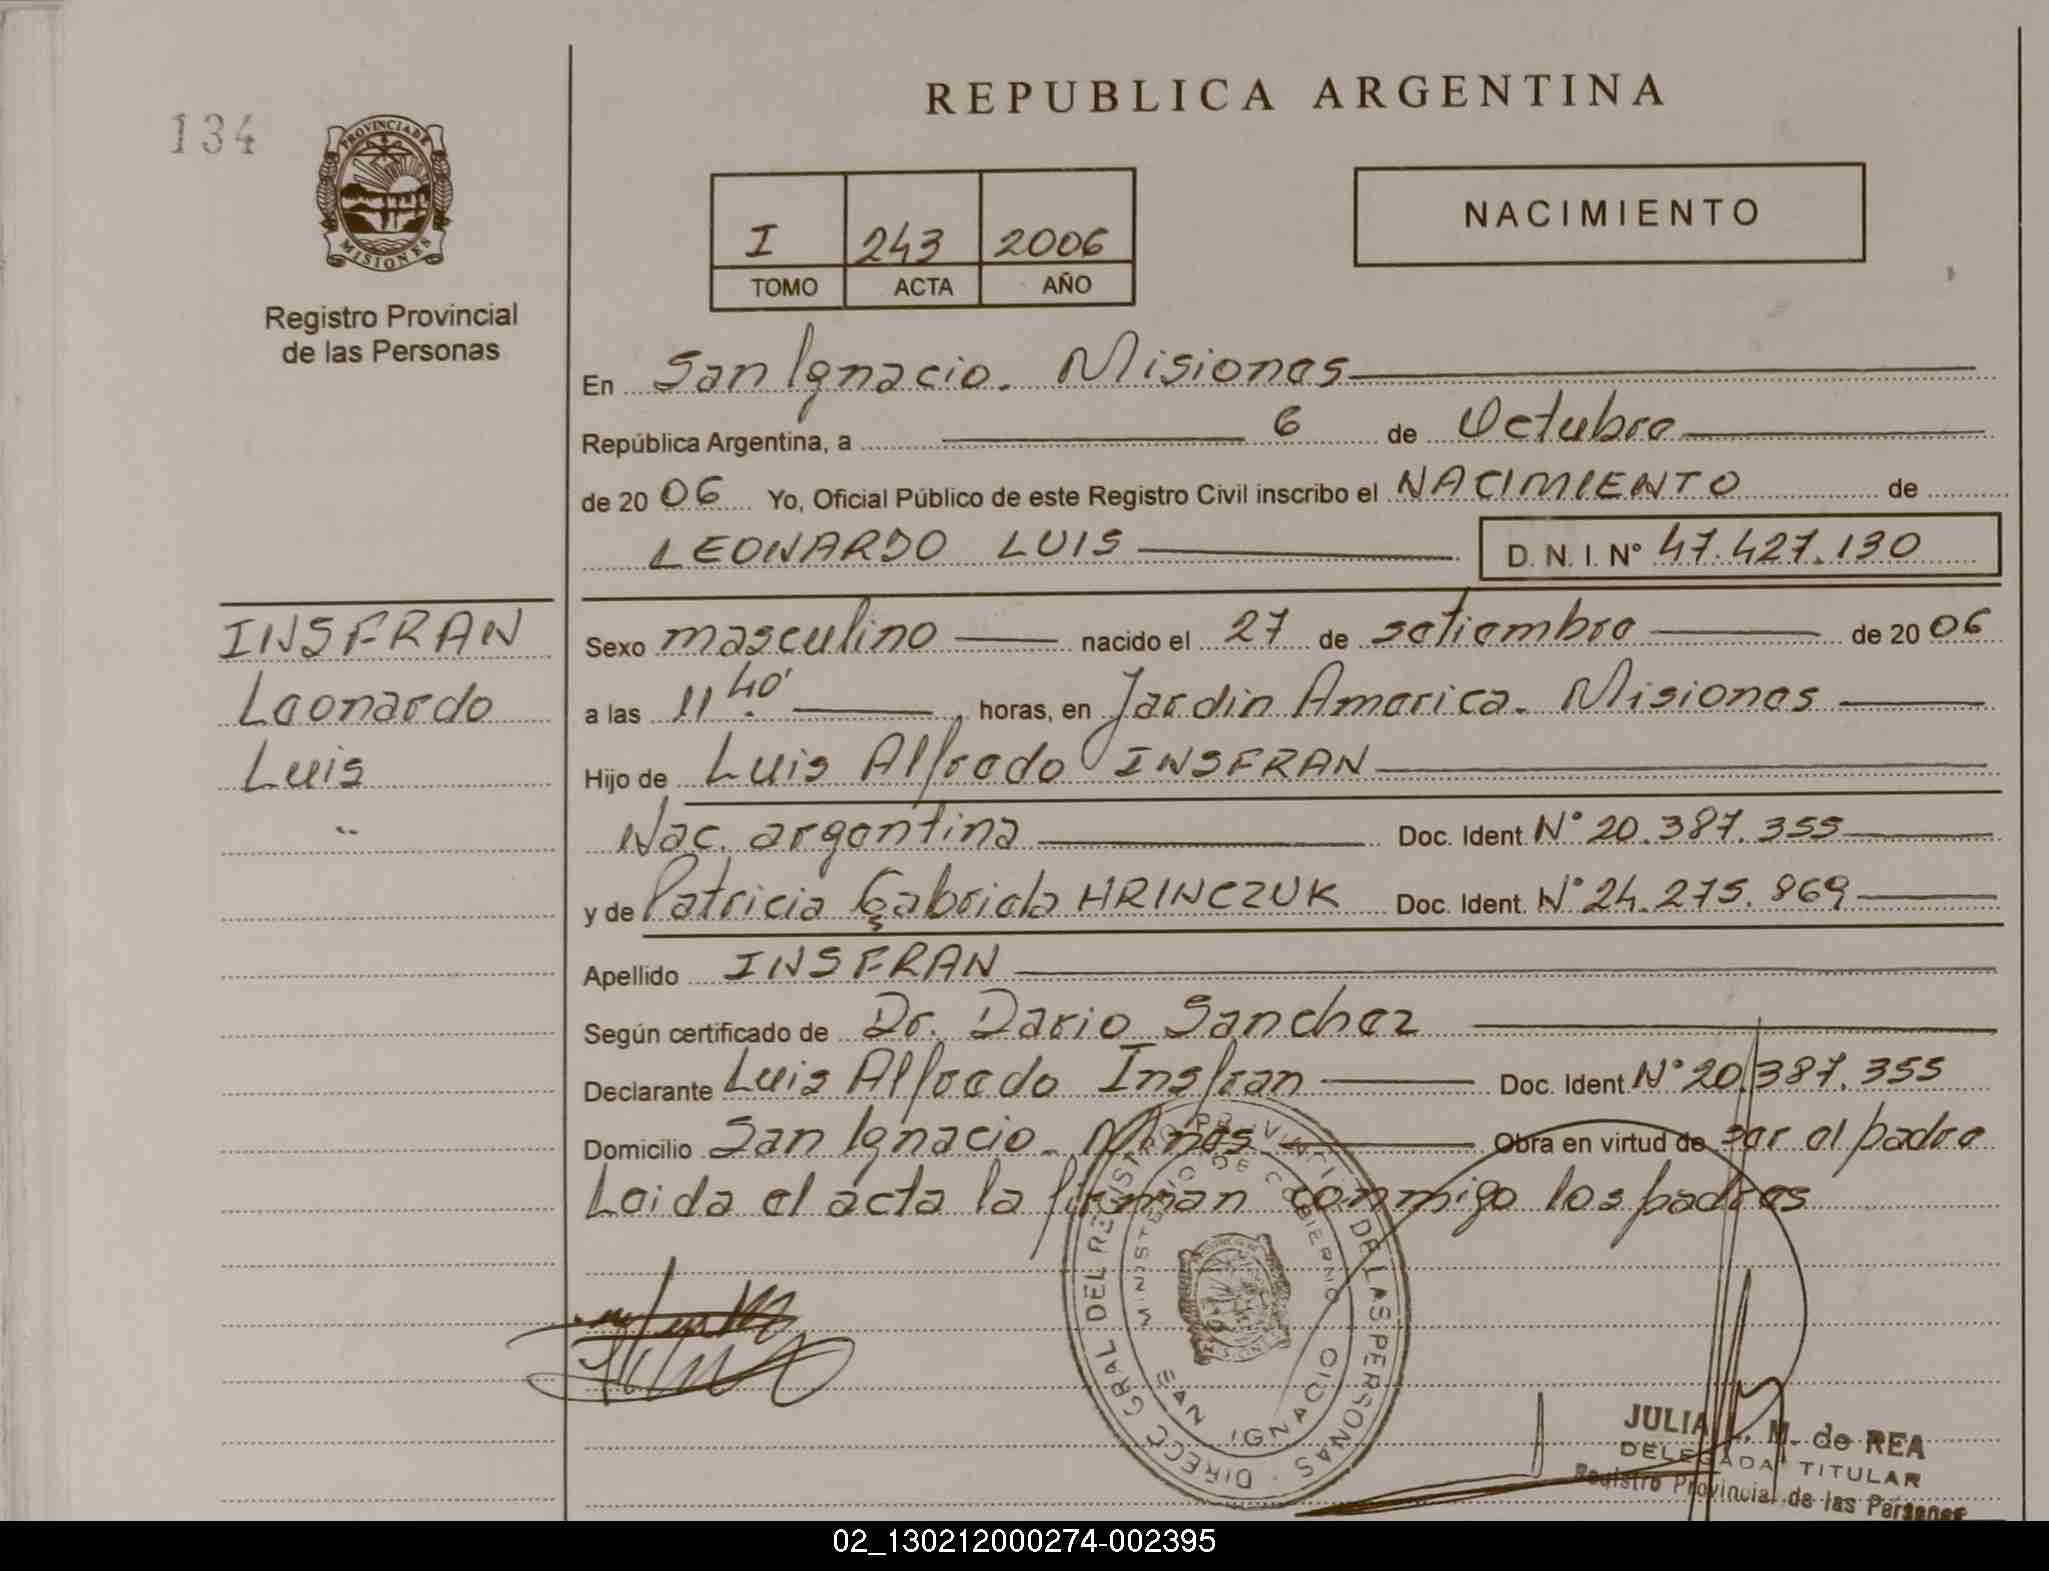 134
PROVINCIA DE
MISIONES
Registro Provincial
de las Personas
REPUBLICA ARGENTINA
I 243 2006
TOMO ACTA AÑO
NACIMIENTO
En San Ignacio. Misiones
República Argentina, a 6 de Octubre
de 20 06 Yo, Oficial Público de este Registro Civil inscribo el NACIMIENTO de
LEONARDO LUIS D. N. I. Nº 47.427.130
INSFRAN
Leonardo
Luis
Sexo masculino nacido el 27 de setiembre de 20 06
a las 11.40' horas, en Jardin America. Misiones
Hijo de Luis Alfredo INSFRAN
Nac. argentina Doc. Ident. Nº 20.387.355
y de Patricia Gabriela HRINCZUK Doc. Ident. Nº 24.275.869
Apellido INSFRAN
Según certificado de Dr. Dario Sanchez
Declarante Luis Alfredo Insfran Doc. Ident. Nº 20.387.355
Domicilio San Ignacio. Mnes Obra en virtud de ser el padre
Leida el acta la firman conmigo los padres
DIRECC GRAL DEL REGISTRO PROVINCIAL DE LAS PERSONAS
MINISTERIO DE GOBIERNO
SAN IGNACIO
JULIA M. de REA
DELEGADA TITULAR
Registro Provincial de las Personas
02_130212000274-002395